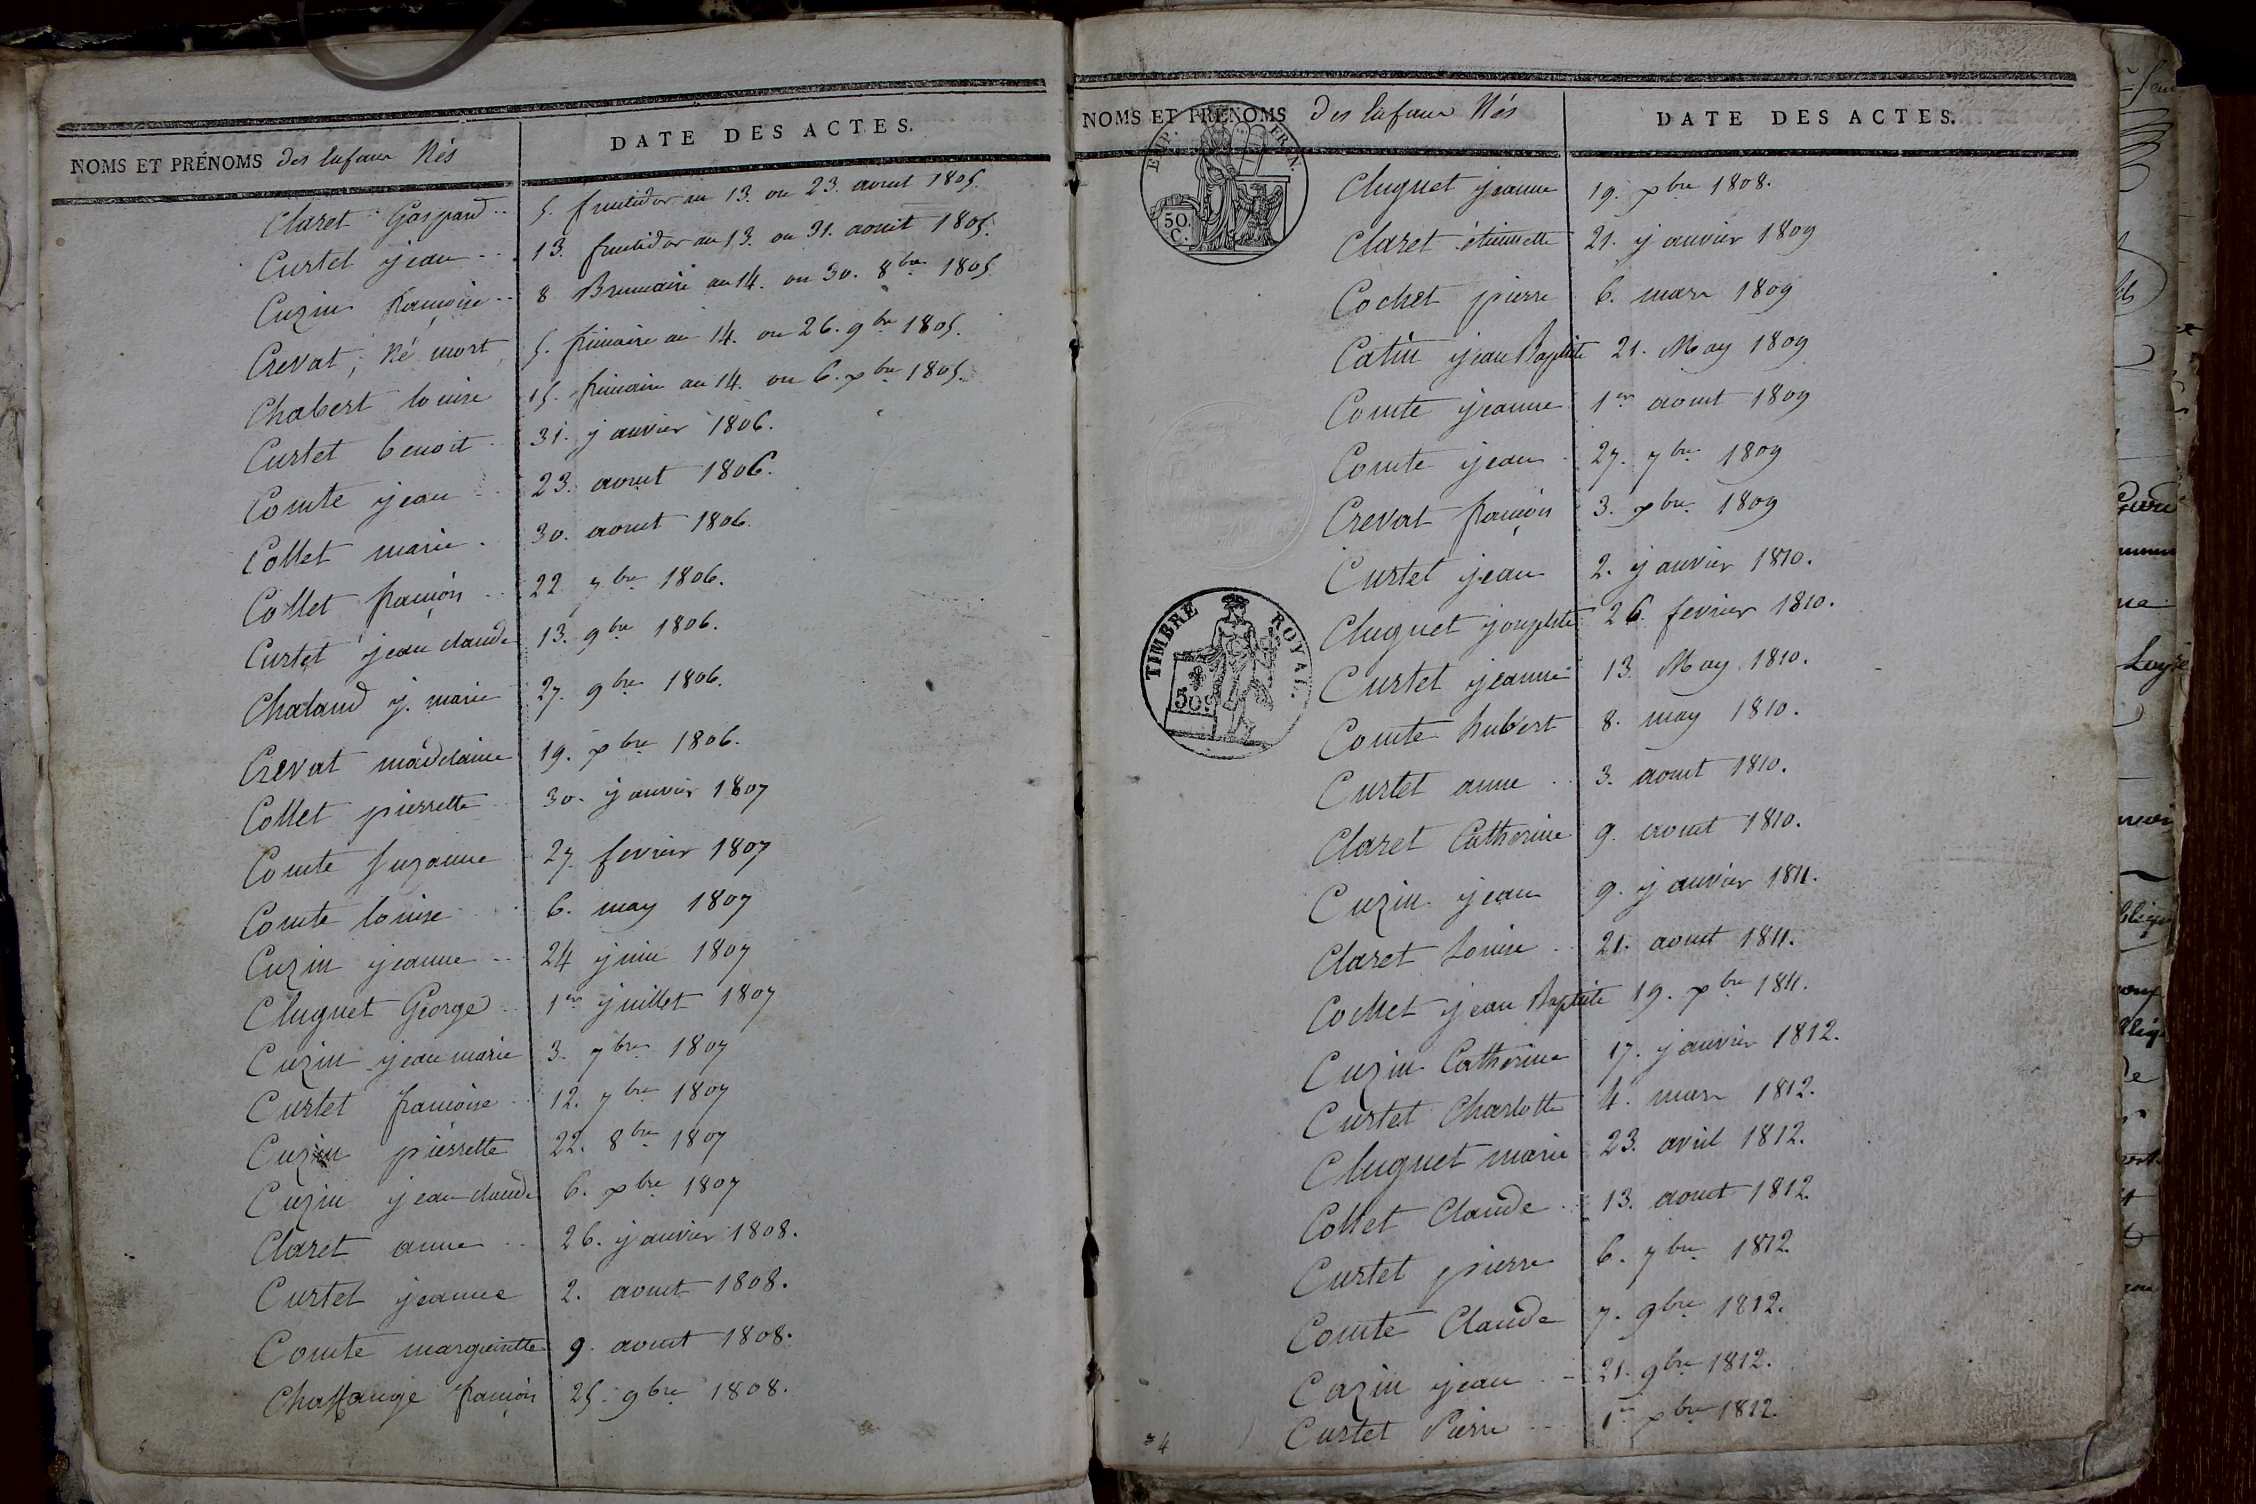 NOMS ET PRÉNOMS des Enfans Nés
DATE DES ACTES.
Claret Gaspard .. 5. fructidor an 13. ou 23. aout 1805.
Curtet jean .. 13. fructidor an 13. ou 31. aout 1805.
Cuzin francoise .. 8 Brumaire an 14. ou 30. 8bre 1805
Crevat, Né mort 5. frimaire an 14. ou 26. 9bre 1805.
Chabert louise 15. frimaire an 14. ou 6. xbre 1805.
Curtet benoit . 31. janvier 1806.
Comte jean .. 23. aout 1806.
Collet marie . 30. aout 1806.
Collet françois .. 22 7bre 1806.
Curtet jean claude 13. 9bre 1806.
Chaland j. marie 27. 9bre 1806.
Crevat madelaine 19. xbre 1806.
Collet pierrette .. 30. janvier 1807
Comte suzanne 27. fevrier 1807
Comte louise .. 6. may 1807
Cuzin jeanne .. 24 juin 1807
Cluguet George .. 1er juillet 1807
Cuzin jean marie 3. 7bre 1807
Curtet francoise .. 12. 7bre 1807
Cuzin pierrette 22. 8bre 1807
Cuzin jean claude 6. xbre 1807
Claret anne .. 26. janvier 1808.
Curtet jeanne 2. aout 1808.
Comte marguerite 9. aout 1808.
Chaffange françois 25. 9bre 1808.
NOMS ET PRÉNOMS des Enfans Nés
DATE DES ACTES.
EMP. FRAN.
50. C.
Cluguet jeanne 19. xbre 1808.
Claret étiennette 21. janvier 1809
Cochet pierre 6. mars 1809
Catin jean Baptiste 21. May 1809
Comte jeanne 1er aout 1809
Comte jean . 27. 7bre 1809
Crevat françois 3. xbre 1809
Curtet jean 2. janvier 1810.
TIMBRE ROYAL.
50.
Cluguet 26. fevrier 1810.
Curtet jeanne 13. May 1810.
Comte hubert 8. may 1810.
Curtet anne .. 3. aout 1810.
Claret Catherine 9. aout 1810.
Cuzin jean 9. janvier 1811.
Claret Louise .. 21. aout 1811.
Collet jean Baptiste 19. xbre 1811.
Cuzin Catherine 17. janvier 1812.
Curtet Charlotte 4. mars 1812.
Cluguet marie 23. avril 1812.
Collet Claude .. 13. aout 1812.
Curtet pierre 6. 7bre 1812.
Comte Claude 7. 9bre 1812.
Cazin jean .. 21. 9bre 1812.
Curtet Pierre .. 1er xbre 1812.
4